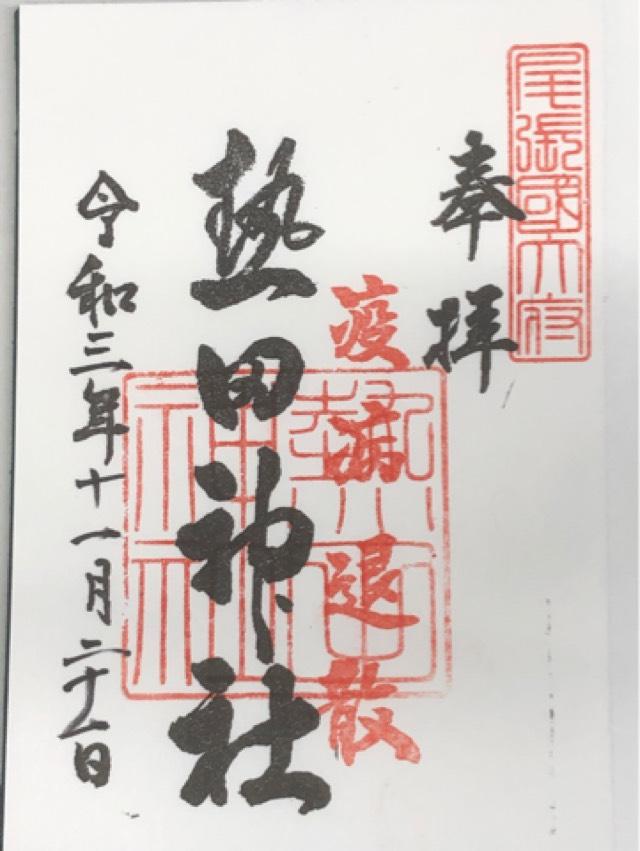 尾張國大府
奉拝
疫病退散
熱田神社
熱田
神社
令和三年十一月二十一日